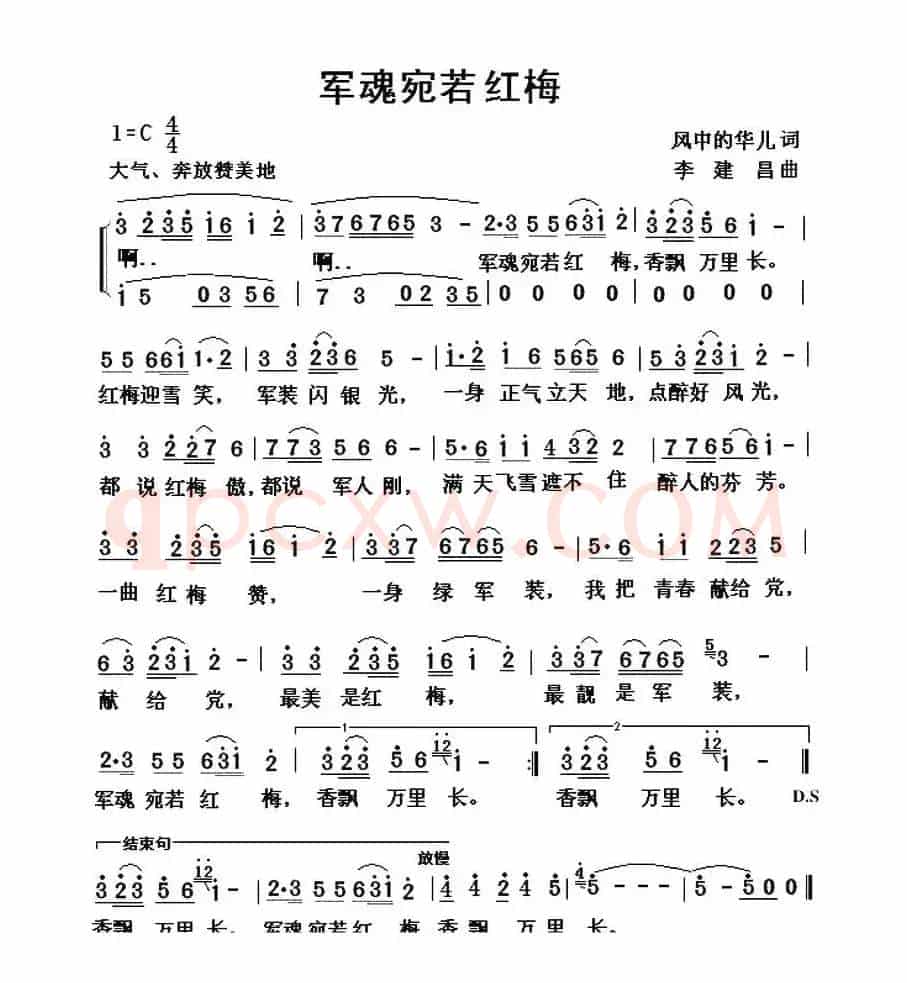 军魂宛若红梅
1=C 4/4
风中的华儿 词
大气、奔放赞美地
李建昌 曲
3 2 3 5 1 6 1 2 | 3 7 6 7 6 5 3 - | 2·3 5 5 6 3 1 2 | 3 2 3 5 6 1 - |
啊.. 啊.. 军魂宛若红 梅,香飘 万里长。
1 5 0 3 5 6 | 7 3 0 2 3 5 | 0 0 0 0 | 0 0 0 0 |
5 5 6 6 1 1·2 | 3 3 2 3 6 5 - | 1·2 1 6 5 6 5 6 | 5 3 2 3 1 2 - |
红梅迎雪 笑, 军装闪银光, 一身 正气立天 地,点醉好 风光,
3 3 2 2 7 6 | 7 7 3 5 6 6 - | 5·6 1 1 4 3 2 2 | 7 7 6 5 6 1 - |
都 说 红梅 傲,都说 军人刚, 满 天飞雪遮不 住 醉人的芬 芳。
qpcxw.com
3 3 2 3 5 1 6 1 2 | 3 3 7 6 7 6 5 6 - | 5·6 1 1 2 2 3 5 |
一曲 红梅 赞, 一身 绿 军 装, 我把 青春 献给 党,
6 3 2 3 1 2 - | 3 3 2 3 5 1 6 1 2 | 3 3 7 6 7 6 5 5 3 - |
献 给 党, 最美 是红 梅, 最 靓 是 军 装,
1 2
2·3 5 5 6 3 1 2 | 3 2 3 5 6 1 2 1 - :| 3 2 3 5 6 1 2 1 - |
军魂 宛若 红 梅, 香飘 万里 长。 香飘 万里 长。 D.S
结束句 放慢
3 2 3 5 6 1 2 1 - | 2·3 5 5 6 3 1 2 | 4 4 2 4 5 | 4 5 - - - | 5 - 5 0 0 ||
香飘 万里 长, 军魂宛若红 梅 香飘 万 里 长。